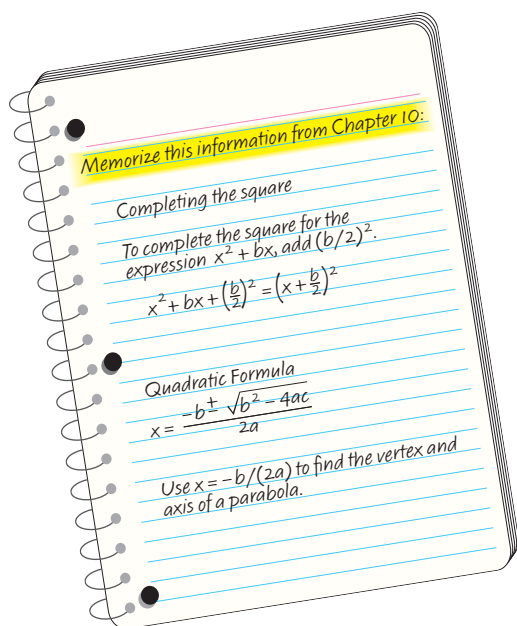 Memorize this information from Chapter 10:
Completing the square
To complete the square for the
expression x² + bx, add (b/2)².
x² + bx + (b/2)² = (x + b/2)²
Quadratic Formula
x = (-b ± √(b² - 4ac)) / 2a
Use x = -b/(2a) to find the vertex and
axis of a parabola.